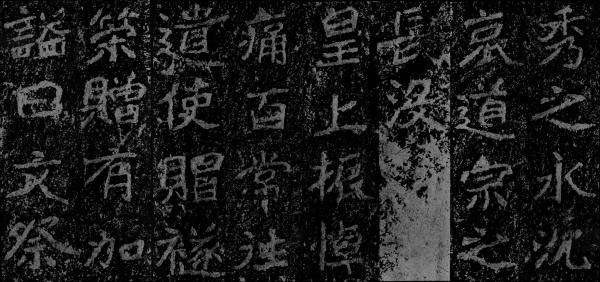 秀之永沈
哀道宗之
長没
皇上振悼
痛百常往
遣使賵襚
策贈有加
謚曰文祭